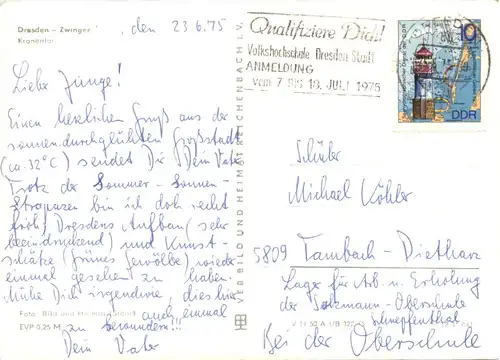 Dresden – Zwinger
Kronentor
, den 23 6. 75
Liebe Junge!
Einen herzlichen Gruß aus der
sonnendurchglühten Großstadt
(ca. 32°C) sendet Dir Dein Vater
Trotz der Sommer-Sonnen-
Strapazen bin ich doch recht
froh, Dresdens Aufbau (sehr
beeindruckend) und Kunst-
schätze (grünes Gewölbe) wieder
einmal gesehen zu haben.
Mühe Dich irgendwie, dies hier
auch einmal
zu bewundern!!!
Dein Vater
Foto: Bild und Heimat
EVP 0,25 M
VEB BILD UND HEIMAT REICHENBACH I. V.
Qualifiziere Dich!
Volkshochschule Dresden Stadt
ANMELDUNG
vom 7 BIS 10. JULI 1975
10
DDR
Schüler
Michael Köhler
5809 Tambach-Dietharz
Lager für Arb. u. Erholung
der Salzmann-Oberschule
Schnepfenthal
Bei der Oberschule